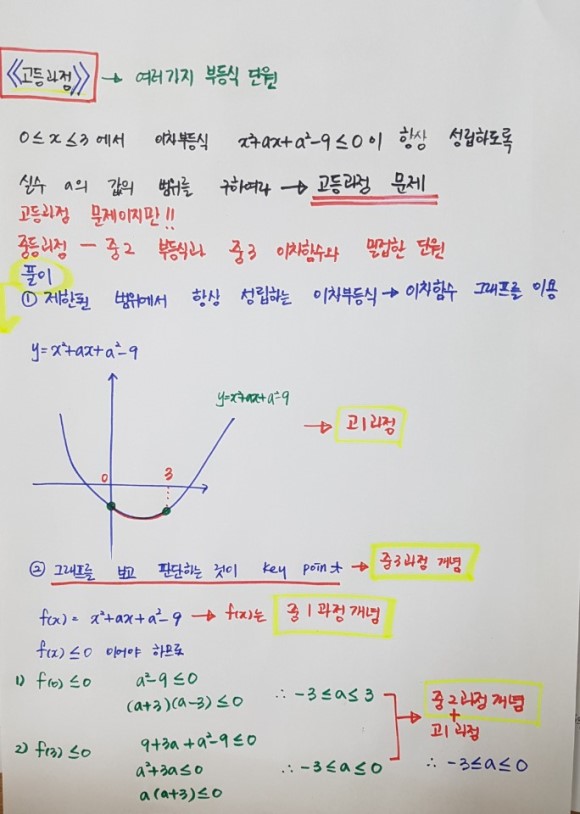 《고등과정》 → 여러가지 부등식 단원
0≤x≤3 에서 이차부등식 x²+ax+a²-9≤0 이 항상 성립하도록
실수 a의 값의 범위를 구하여라 → 고등과정 문제
고등과정 문제이지만!!
중등과정 - 중2 부등식과 중3 이차함수와 밀접한 단원
풀이
① 제한된 범위에서 항상 성립하는 이차부등식 → 이차함수 그래프를 이용
y=x²+ax+a²-9
y=x²+ax+a²-9
→ 고1과정
0 3
② 그래프를 보고 판단하는 것이 key point → 중3과정 개념
f(x) = x²+ax+a²-9 → f(x)는 중1과정개념
f(x)≤0 이어야 하므로
1) f(0)≤0 a²-9≤0
(a+3)(a-3)≤0 ∴ -3≤a≤3
→ 중2과정개념
+
고1과정
2) f(3)≤0 9+3a+a²-9≤0
a²+3a≤0 ∴ -3≤a≤0 ∴ -3≤a≤0
a(a+3)≤0